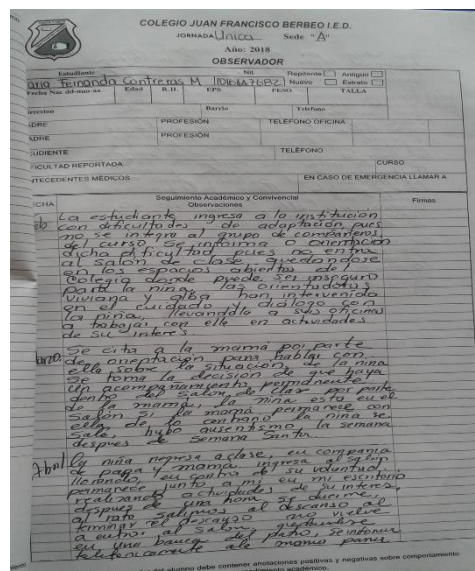 COLEGIO JUAN FRANCISCO BERBEO I.E.D.
JORNADA Unica Sede "A"
Año: 2018
OBSERVADOR
Estudiante NIT. Repitente Antiguo
Fernanda Contreras M Nuevo Estrato
Fecha Nac dd-mm-aa Edad R.H. EPS PESO TALLA
Barrio Teléfono
PROFESIÓN TELÉFONO OFICINA
PROFESIÓN
TELÉFONO
CURSO
ANTECEDENTES MÉDICOS EN CASO DE EMERGENCIA LLAMAR A
Seguimiento Académico y Convivencial
Observaciones Firmas
La estudiante ingresa a la institución
con dificultades de adaptación, pues
no se integra al grupo de compañeros
del curso. Se informa a orientación
dicha dificultad pues no entra
al salón de clase, quedandose
en los espacios abiertos del
colegio donde puede ser inseguro
para la niña, las orientadoras
Viviana y Alba han intervenido
en el cuidado y diálogo con
la niña, llevandola a sus oficinas
a trabajar con ella en actividades
de su interes.
Se cita a la mamá por parte
de orientación para hablar con
ella sobre la situación de la niña
Se toma la decisión de que haya
un acompañamiento permanente
dentro del salón de clase por parte
de la mamá, la niña esta en el
salón si la mamá permanece con
ella, de lo contrario la niña se
sale, hubo ausentismo la semana
despues de Semana Santa.
Abril La niña regresa a clase, en compañia
de papa y mamá, ingresa al salón
llorando, en contra de su voluntad,
permanece junto a mi en mi escritorio
realizando actividades de su interes,
despues de una hora se duerme,
al rato salimos al descanso al
terminar el descanzo no vuelve
a entrar al salón, quedandose
en una banca del patio, se informa
telefonicamente ala mamá para
del alumno debe contener anotaciones positivas y negativas sobre comportamiento
rendimiento académico.